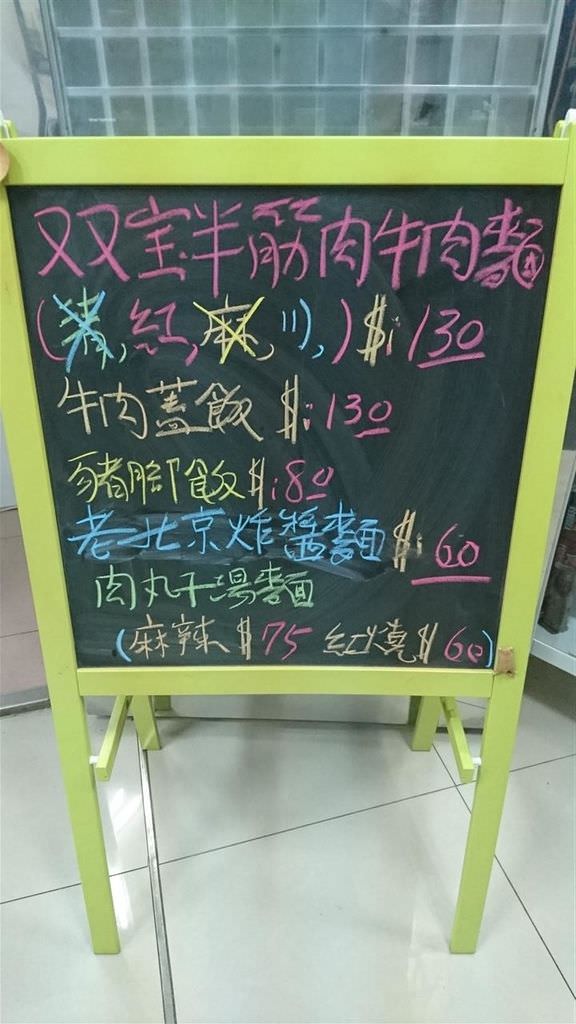 双宝半筋肉牛肉麵
(清,紅,麻,川,)$:130
牛肉蓋飯 $:130
豬腳飯$:80
老北京炸醬麵$:60
肉丸子湯麵
(麻辣$75 紅燒$60)